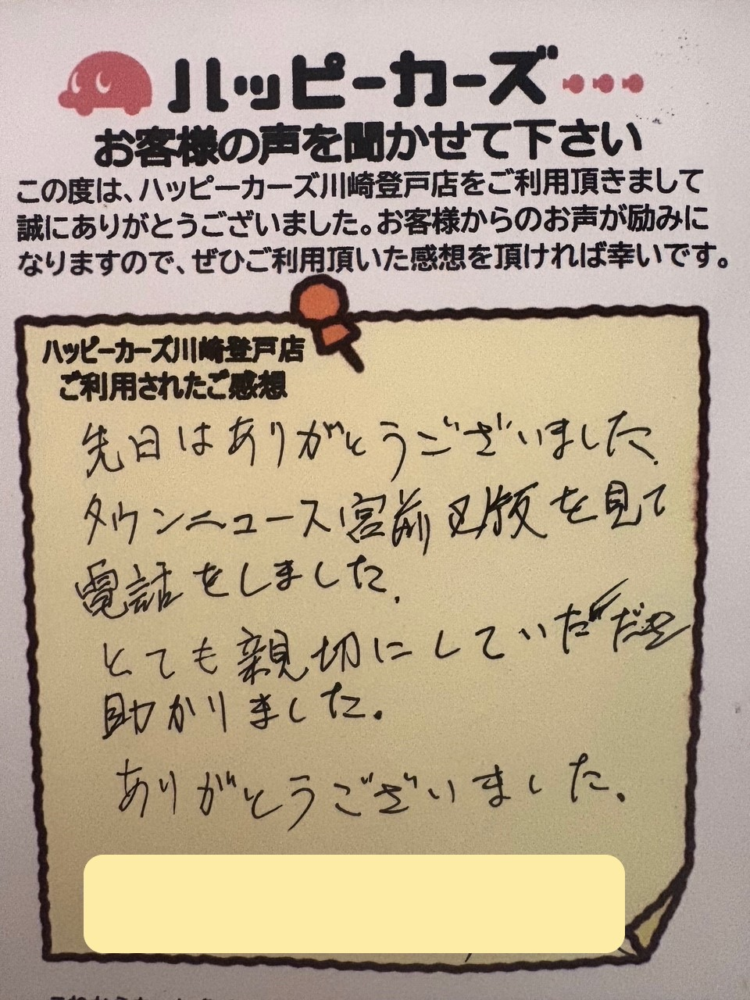 ハッピーカーズ
お客様の声を聞かせて下さい
この度は、ハッピーカーズ川崎登戸店をご利用頂きまして
誠にありがとうございました。お客様からのお声が励みに
なりますので、ぜひご利用頂いた感想を頂ければ幸いです。
ハッピーカーズ川崎登戸店
ご利用されたご感想
先日はありがとうございました。
タウンニュース宮前区版を見て
電話をしました。
とても親切にしていただき
助かりました。
ありがとうございました。